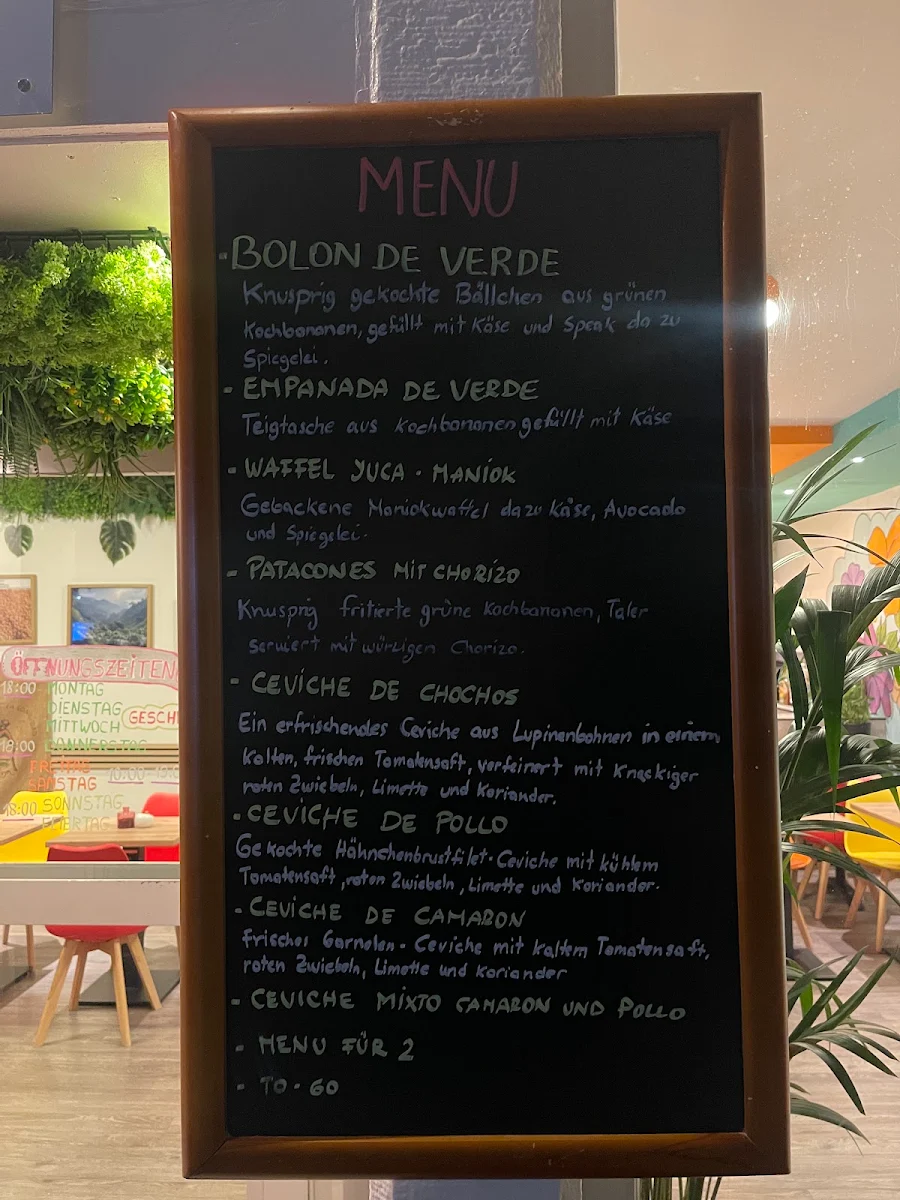 MENU
- BOLON DE VERDE
Knusprig gekochte Bällchen aus grünen
Kochbananen, gefüllt mit Käse und Speak da zu
Spiegelei.
- EMPANADA DE VERDE
Teigtasche aus Kochbananen gefüllt mit Käse
- WAFFEL YUCA - MANIOK
Gebackene Maniokwaffel dazu Käse, Avocado
und Spiegelei.
- PATACONES MIT CHORIZO
Knusprig fritierte grüne Kochbananen, Taler
serviert mit würzigen Chorizo.
- CEVICHE DE CHOCHOS
Ein erfrischendes Ceviche aus Lupinenbohnen in einem
kalten, frischen Tomatensaft, verfeinert mit Knackiger
roten Zwiebeln, Limette und Koriander.
- CEVICHE DE POLLO
Gekochte Hähnchenbrustfilet-Ceviche mit kühlem
Tomatensaft, roten Zwiebeln, Limette und Koriander.
- CEVICHE DE CAMARON
frischer Garnelen - Ceviche mit kaltem Tomatensaft,
roten Zwiebeln, Limette und Koriander
- CEVICHE MIXTO CAMARON UND POLLO
- MENU FÜR 2
- TO-GO
ÖFFNUNGSZEITEN
18:00 MONTAG
DIENSTAG
MITTWOCH GESCH
18:00 DONNERSTAG
FREITAG
SAMSTAG
18:00 SONNSTAG
FEIERTAG